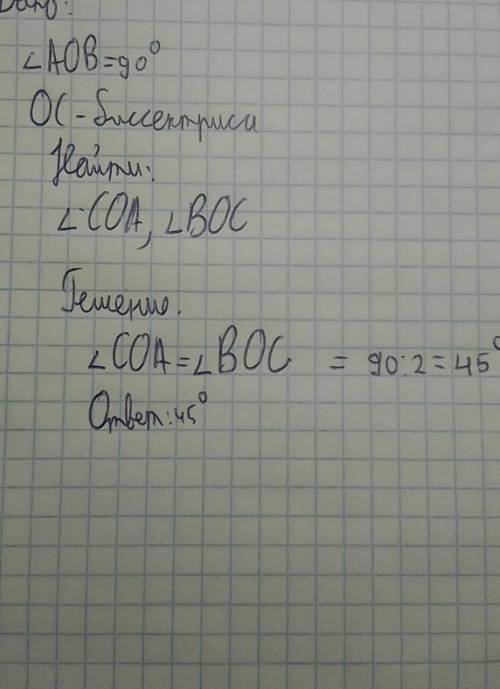 Дано:
∠AOB=90⁰
OC-биссектриса
Найти:
∠COA, ∠BOC
Решение.
∠COA=∠BOC = 90:2=45⁰
Ответ:45⁰